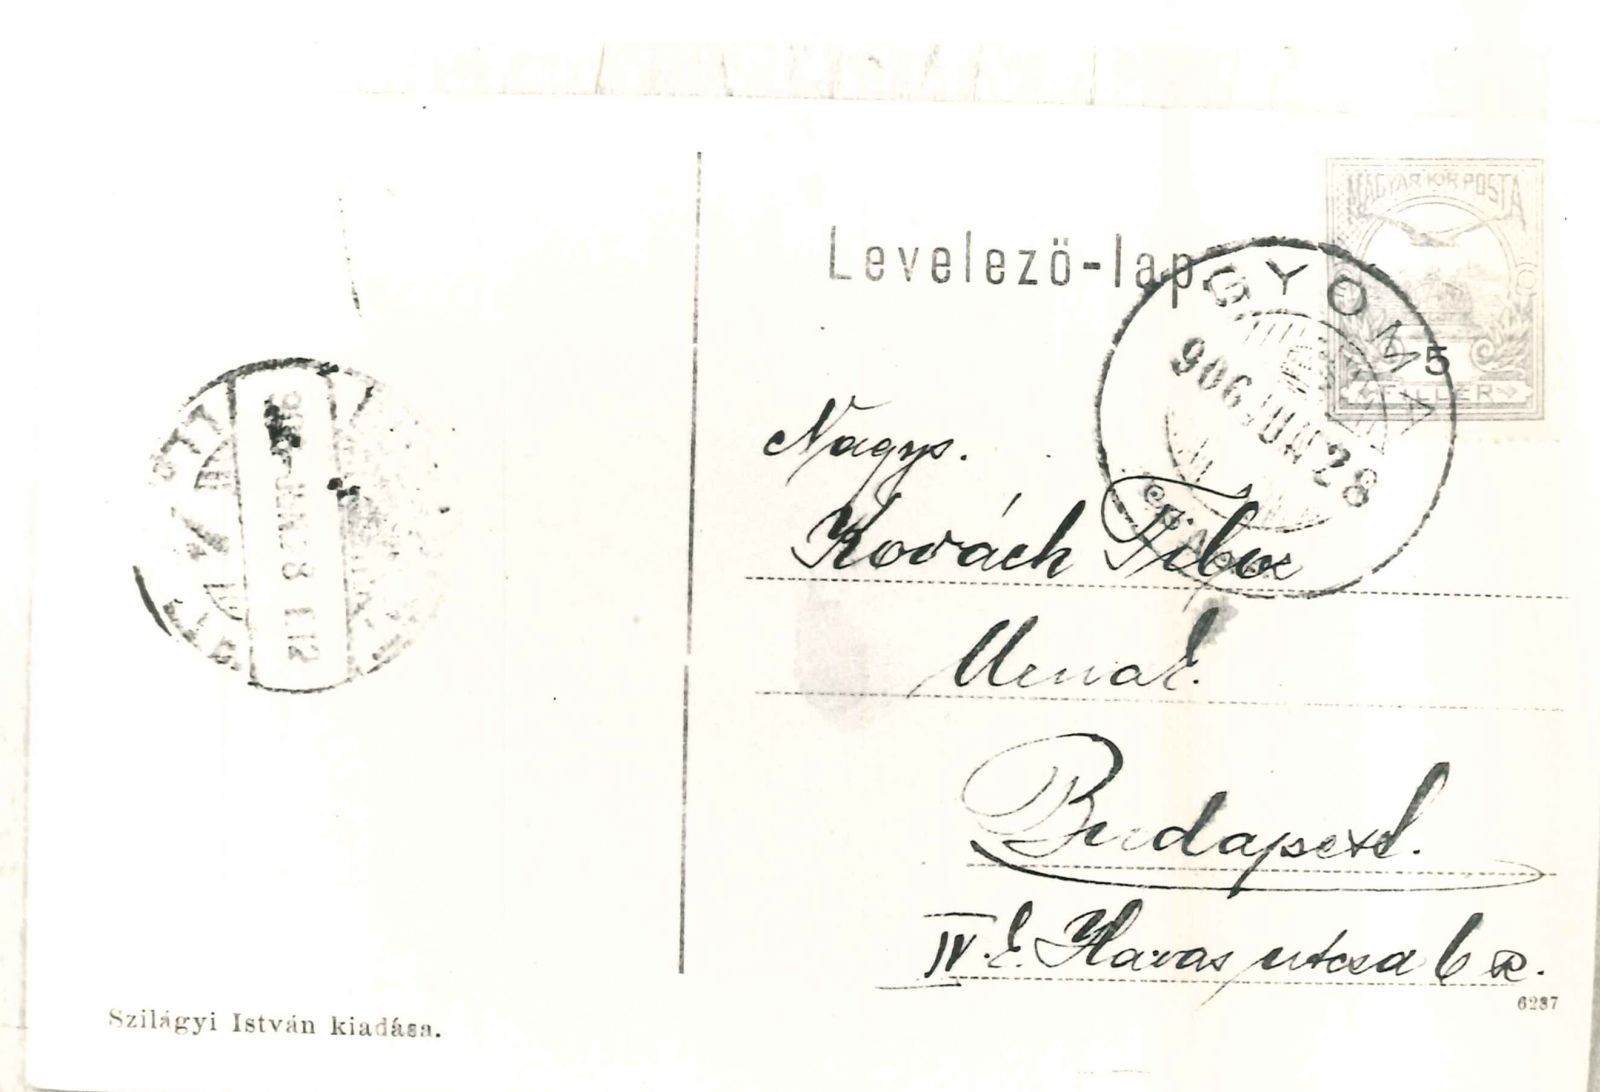 MAGYAR KIR. POSTA
Levelező-lap.
GYOMA
906 JUN 28
5
FILLÉR
Nagys.
Kovách Tibor
Urnak.
Budapest.
IV. E. Havas utcsa 6 sz.
6287
JUN 28 E 12
Szilágyi István kiadása.